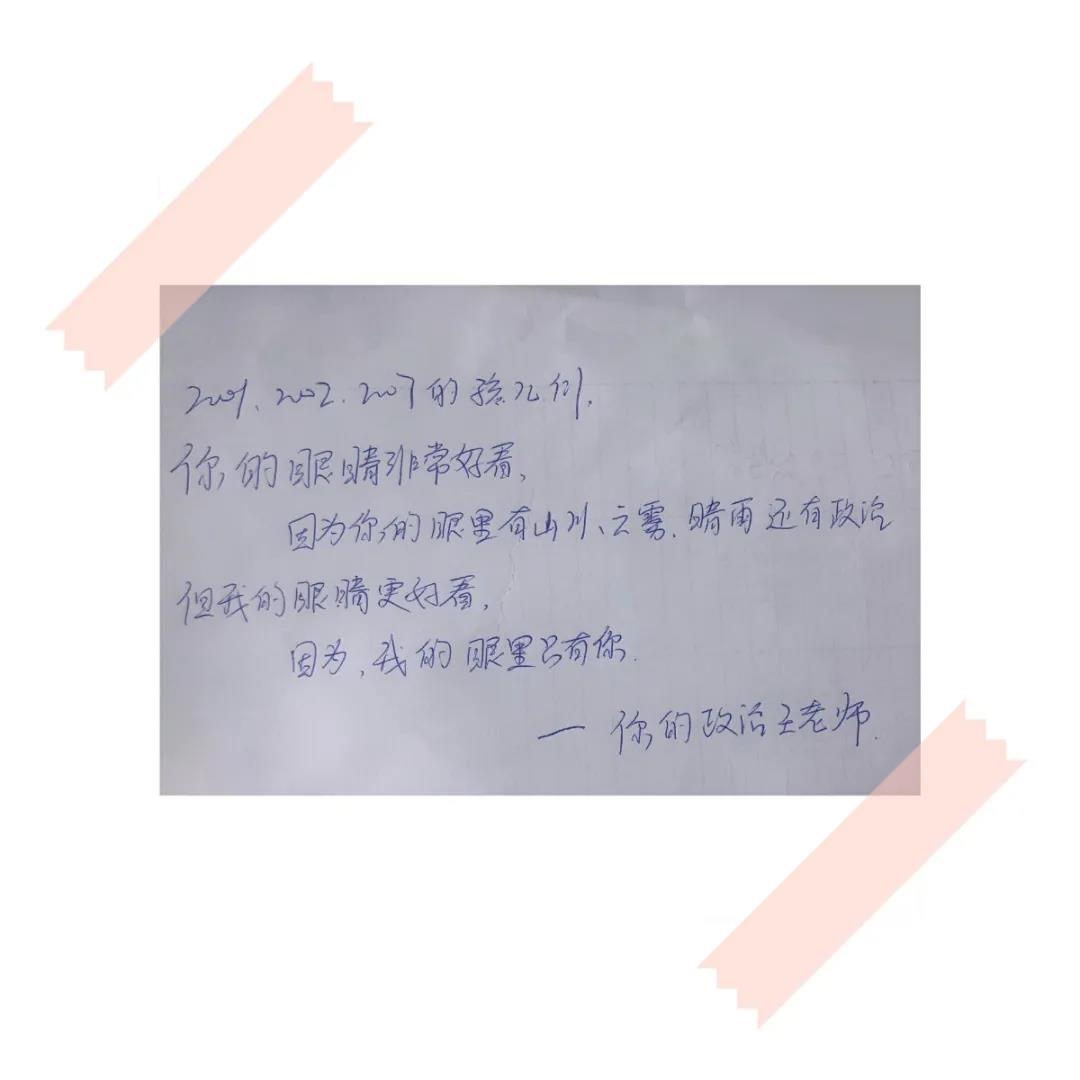 2001、2002、2007的孩儿们,
你的眼睛非常好看,
因为你的眼里有山川、云雾、晴雨还有政治
但我的眼睛更好看,
因为,我的眼里只有你.
— 你的政治王老师.